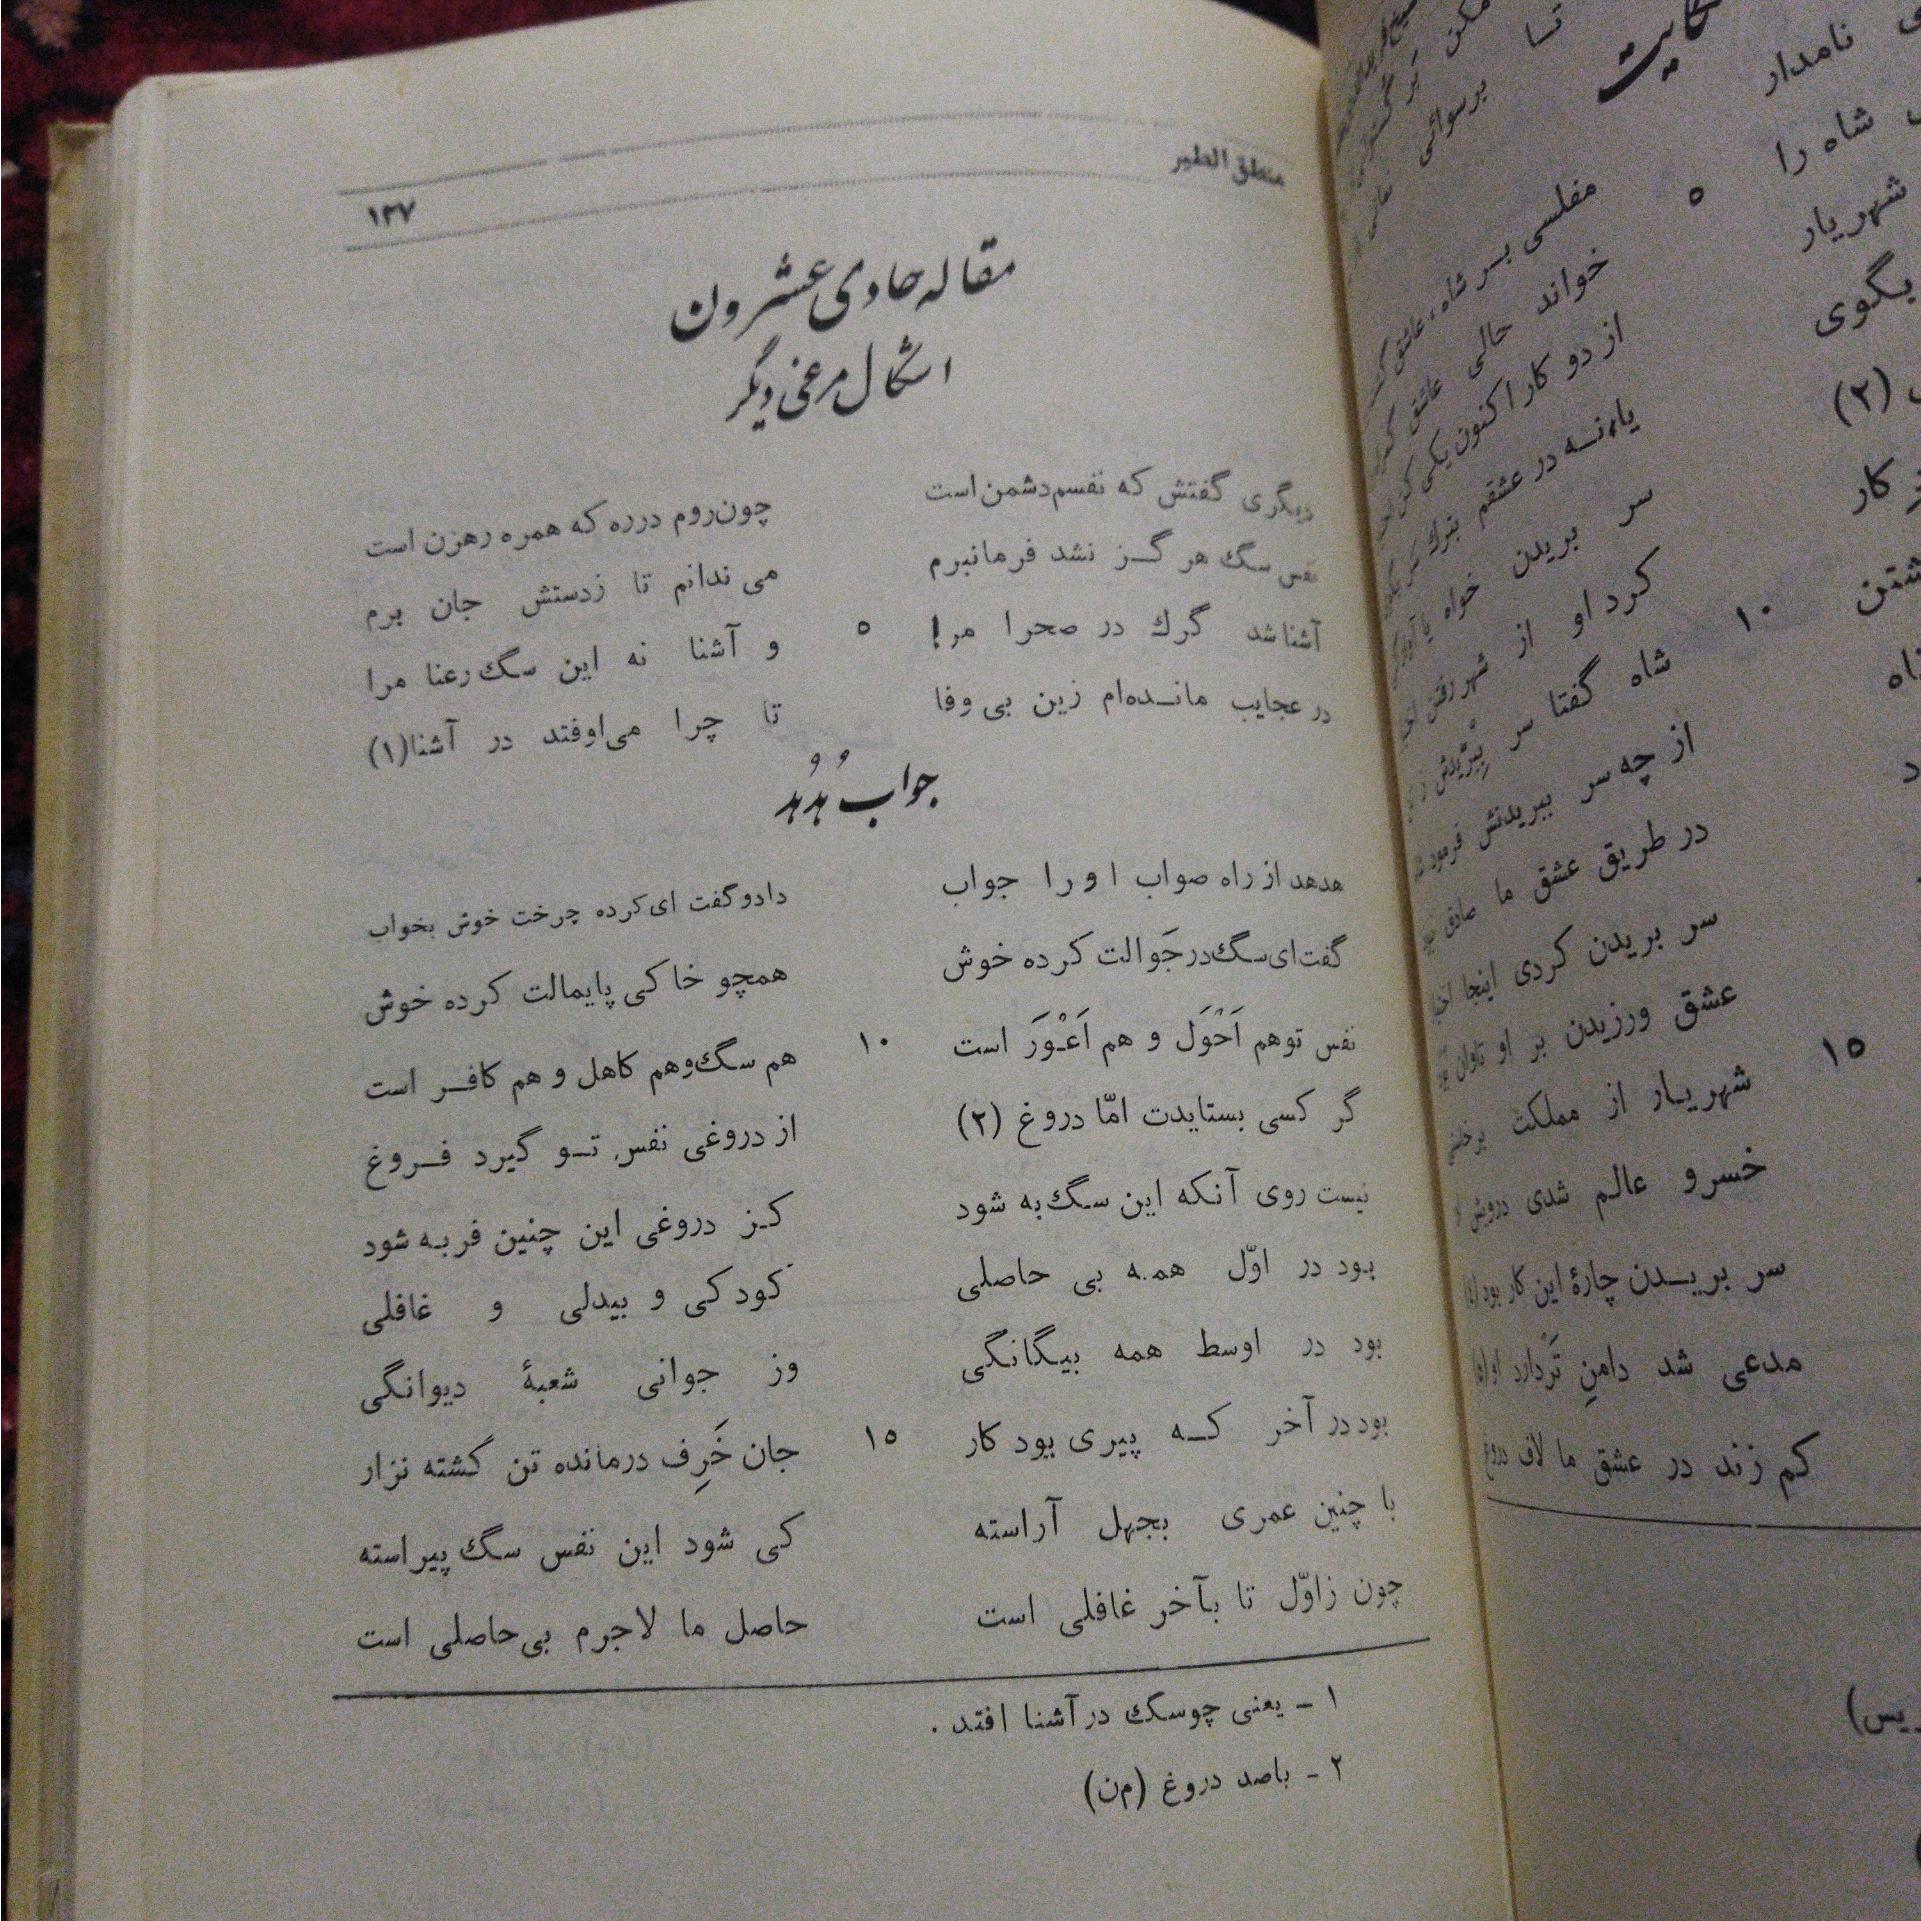 منطق الطیر
۱۳۷
مقاله حادی عشرون
اشکال مرغی دیگر
دیگری گفتش که نفسم دشمن است چون روم در ره که همره رهزن است
نفس سگ هر گز نشد فرمانبرم می ندانم تا زدستش جان برم
آشنا شد گرگ در صحرا مرا ۵ و آشنا نه این سگ رعنا مرا
در عجایب مانده‌ام زین بی وفا تا چرا می‌اوفتد در آشنا(۱)
جواب هُدهُد
هدهد از راه صواب او را جواب داد و گفت ای کرده چرخت خوش بخواب
گفت ای سگ در جَوالت کرده خوش همچو خاکی پایمالت کرده خوش
نفس تو هم اَحْوَل و هم اَعْوَر است ۱۰ هم سگ و هم کاهل و هم کافر است
گر کسی بستایدت امّا دروغ (۲) از دروغی نفس تو گیرد فروغ
نیست روی آنکه این سگ به شود کز دروغی این چنین فربه شود
بود در اوّل همه بی حاصلی کودکی و بیدلی و غافلی
بود در اوسط همه بیگانگی وز جوانی شعبهٔ دیوانگی
بود در آخر که پیری بود کار ۱۵ جان خَرِف درمانده تن گشته نزار
با چنین عمری بجهل آراسته کی شود این نفس سگ پیراسته
چون زاوّل تا بآخر غافلی است حاصل ما لاجرم بی‌حاصلی است
۱ - یعنی چوسگ در آشنا افتد .
۲ - باصد دروغ (م‌ن)
نامدار
شاه را
شهریار
بگوی
(۲)
کار
۵
مفلسی بر شاه، عاشق
خواند حالی عاشق
از دو کار اکنون یکی کن
یا نه در عشقم بترک سر
سر بریدن خواه یا
۱۰ کرد او از شهر رفتن
شاه گفتا سر ببریدش
از چه سر ببریدنش فرمود
در طریق عشق ما صادق
سر بریدن کردی اینجا
۱۵ عشق ورزیدن بر او تاوان
شهریار از مملکت برخاستی
خسرو عالم شدی درویش
سر بریدن چارهٔ این کار بود
مدعی شد دامنِ تَر دارد او
کم زند در عشق ما لاف دروغ